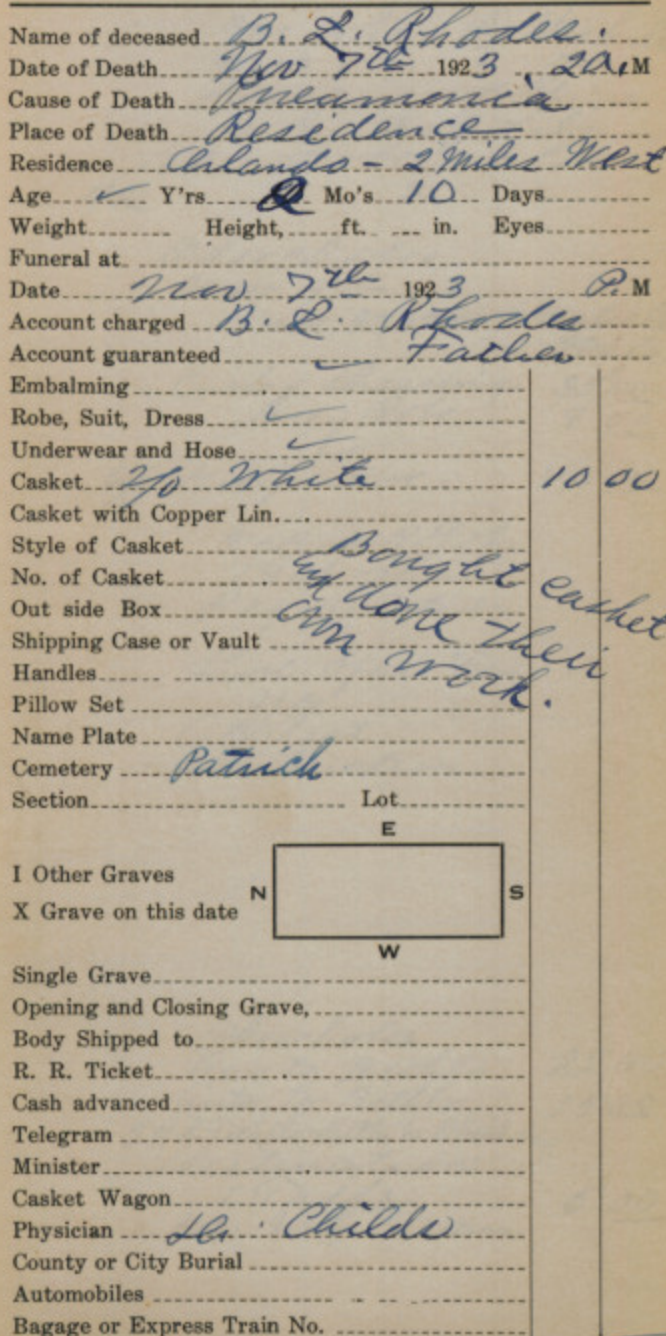 Name of deceased B. L. Rhodes.
Date of Death Nov 7th 1923, 2 A.M
Cause of Death Pneumonia
Place of Death Residence
Residence Orlando - 2 Miles West
Age ✓ Y'rs 2 Mo's 10 Days
Weight Height, ft. in. Eyes
Funeral at
Date Nov 7th 1923 P.M
Account charged B. L. Rhodes
Account guaranteed ✓ Father
Embalming
Robe, Suit, Dress ✓
Underwear and Hose ✓
Casket 2/0 White 10 00
Casket with Copper Lin.
Style of Casket Bought casket
No. of Casket done their
Out side Box own work.
Shipping Case or Vault
Handles
Pillow Set
Name Plate
Cemetery Patrick
Section Lot
E
I Other Graves
N S
X Grave on this date
W
Single Grave
Opening and Closing Grave,
Body Shipped to
R. R. Ticket
Cash advanced
Telegram
Minister
Casket Wagon
Physician Dr. Childs
County or City Burial
Automobiles
Bagage or Express Train No.